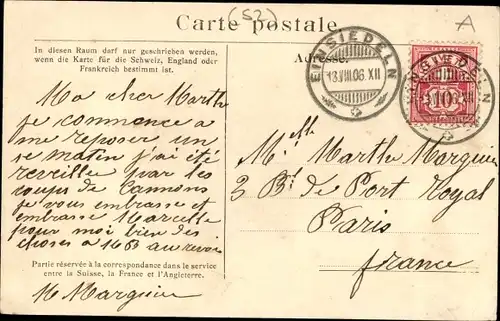 Carte postale
(52)
A
In diesen Raum darf nur geschrieben werden,
wenn die Karte für die Schweiz, England oder
Frankreich bestimmt ist.
Adresse.
EINSIEDELN
13.VIII.06.XII
EINSIEDELN
10
Ma cher Marthe
je commence a
me reposer un
se matin j'ai été
reveillé par les
coups de Cannons
je vous embrasse et
embrasse Marcelle
pour moi bien des
choses a au revoir
Partie réservée à la correspondance dans le service
entre la Suisse, la France et l'Angleterre.
M Marguin
Melle Marthe Marguin
3 Bt de Port Royal
Paris
france